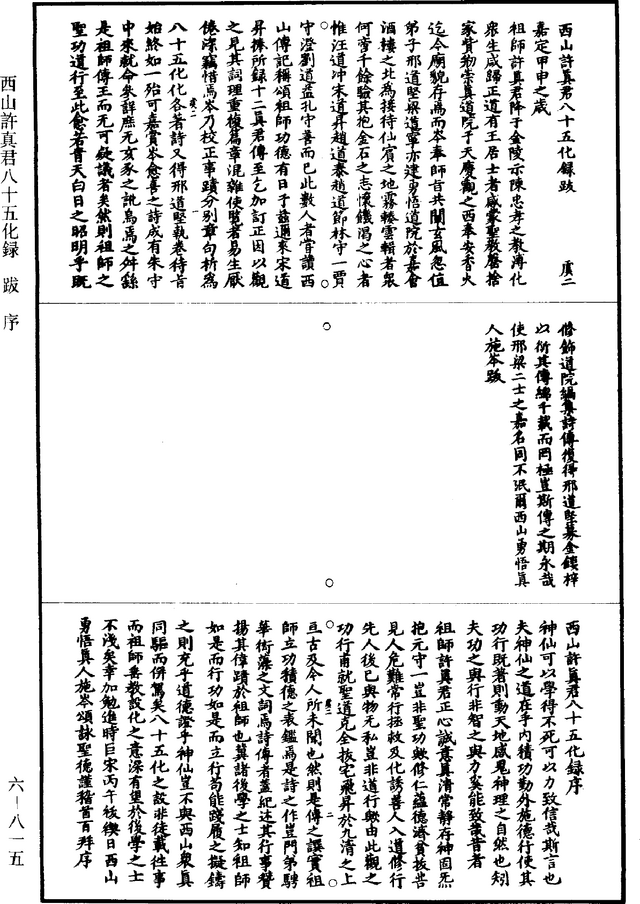 西山許真君八十五化録跋　虞二
嘉定甲申之歲
祖師許真君降于金陵示陳忠孝之教溥化
衆生咸歸正道有王居士者感蒙聖教罄捨
家貲物崇真道院于天慶觀之西奉安香火
迄今廟貌存焉而岑奉師旨共闡玄風忽值
弟子邢道堅梁道寧亦建勇悟道院於嘉會
酒樓之北為接待仙賓之地霧輳雲輯者衆
何啻千餘驗其抱金石之志懷饑渴之心者
惟汪道冲宋道昇趙道泰趙道節林守一賈
守澄劉道益孔守善而已此數人者嘗讀西
山傳記稱頌祖師功德有日于茲邇來宋道
昇捧所録十二真君傳至乞加訂正因以觀
之見其詞理重複篇章混雜使覽者易生厭
倦深竊惜焉岑乃校正事蹟分别章句析為
八十五化化各著詩又得邢道堅執卷待旨
始終如一殆可嘉賞岑愈喜之詩成有朱守
中來就命矣詳庶无亥豕之訛烏焉之舛繇
是祖師傳王而无可疑議者矣然則祖師之
聖功道行至此愈若青天白日之昭明乎既
修飾道院編集詩傳復得邢道堅募金鋟梓
以衍其傳綿千載而罔極豈斯傳之期永哉
使邢梁二士之嘉名同不泯爾西山勇悟真
人施岑跋
西山許真君八十五化録序
神仙可以學得不死可以力致信哉斯言也
夫神仙之道在乎内積功勤外施德行使其
功行既著則動天地感鬼神理之自然也矧
夫功之與行非智之與力奚能致哉昔者
祖師許真君正心誠意真清常靜存神固炁
抱元守一豈非聖功歟修仁蘊德濟貧拔苦
見人危難常行拯救及化誘善人入道修行
先人後已與物无私豈非道行歟由此觀之
功行甫就聖道克全拔宅飛昇於九清之上
亘古及今人所未聞也然則是傳之譔實祖
師立功積德之表鑑焉是詩之作豈門弟騁
華衒藻之文詞焉詩傳者蓋紀述其行事贊
揚其偉蹟於祖師也冀諸後學之士知祖師
如是而行功如是而立行苟能踐履之擬鑄
之則充乎道德證乎神仙豈不與西山衆真
同驅而併駕矣八十五化之設非徒載往事
而祖師垂教設化之意深有望於後學之士
不淺矣幸加勉進時巨宋丙午秡禊日西山
勇悟真人施岑頌詠聖德謹稽首百拜序
西山許真君八十五化録　跋　序
六－八一五